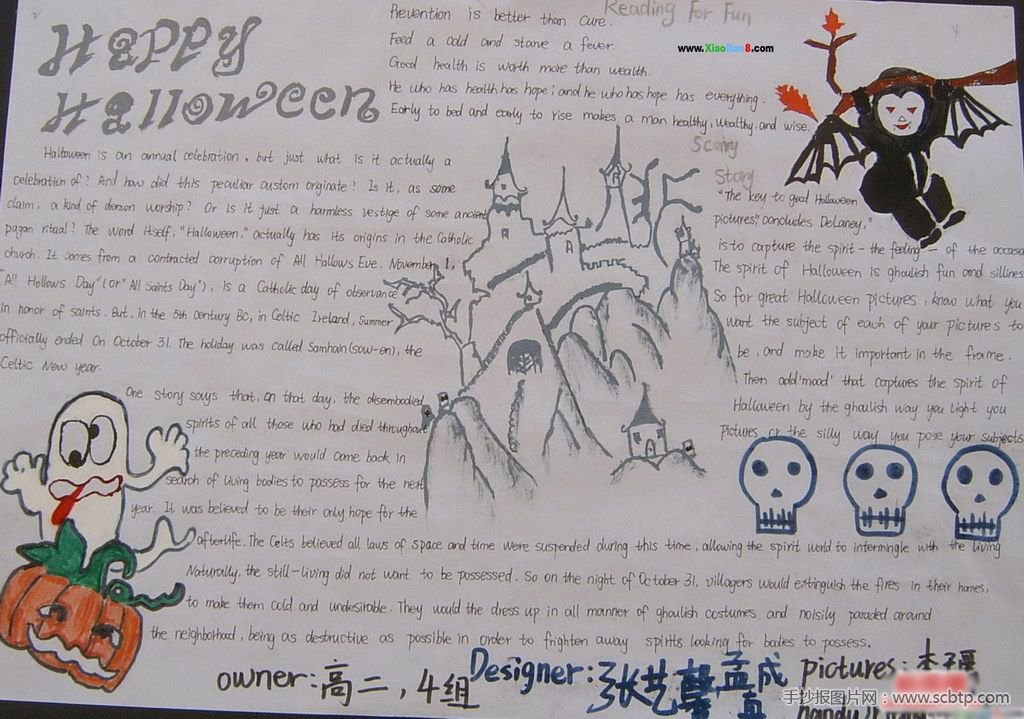 Happy
Halloween
Reading For Fun
Prevention is better than cure.
Feed a cold and starve a fever.
Good health is worth more than wealth.
He who has health has hope; and he who has hope has everything.
Early to bed and early to rise makes a man healthy, wealthy and wise.
www.XiaoBao8.com
Scary
Story
Halloween is an annual celebration, but just what is it actually a
celebration of? And how did this peculiar custom originate? Is it, as some
claim, a kind of demon worship? Or is it just a harmless vestige of some ancient
pagan ritual? The word itself, "Halloween," actually has its origins in the Catholic
church. It comes from a contracted corruption of All Hallows Eve. November 1,
"All Hollows Day" (or "All Saints Day"), is a Catholic day of observance
in honor of saints. But, in the 5th century BC, in Celtic Ireland, summer
officially ended On October 31. The holiday was called Samhain (sow-en), the
Celtic New year.
One story says that, on that day, the disembodied
spirits of all those who had died throughout
the preceding year would come back in
search of living bodies to possess for the next
year. It was believed to be their only hope for the
afterlife. The Celts believed all laws of space and time were suspended during this time, allowing the spirit world to intermingle with the living
Naturally, the still-living did not want to be possessed. So on the night of October 31, villagers would extinguish the fires in their homes,
to make them cold and undesirable. They would the dress up in all manner of ghoulish costumes and noisily paraded around
the neighborhood, being as destructive as possible in order to frighten away spirits looking for bodies to possess.
"The key to good Halloween
pictures," concludes DeLaney,"
is to capture the spirit - the feeling - of the occasion
The spirit of Halloween is ghoulish fun and silliness
So for great Halloween pictures, know what you
want the subject of each of your pictures to
be, and make it important in the frame.
Then add 'mood' that captures the spirit of
Halloween by the ghoulish way you light you
pictures or the silly way you pose your subjects
owner:高二,4组
Designer:张艺馨 孟成真
pictures:
手抄报图片网:www.scbtp.com